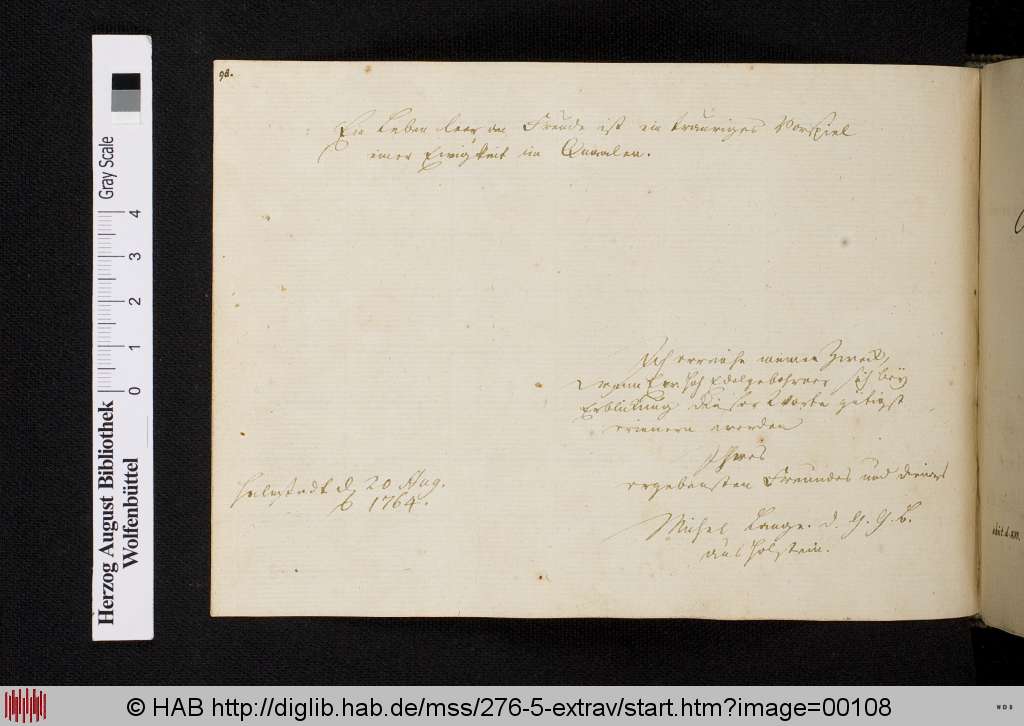 98.
Ein Leben leer an Freude ist ein trauriges Vorspiel
einer Ewigkeit in Quaalen.
Ich erreiche meinen Zweck,
wenn Ew. Hoch Edelgebohren sich bey
Erblickung dieser Worte gütigst
erinnern werden
Ihres
ergebensten Freundes und Dieners
Michel Lange. d. G. G. B.
aus Holstein.
Helmstedt d. 20 Aug.
1764.
Herzog August Bibliothek
Wolfenbüttel
Gray Scale
0 1 2 3 4
© HAB http://diglib.hab.de/mss/276-5-extrav/start.htm?image=00108